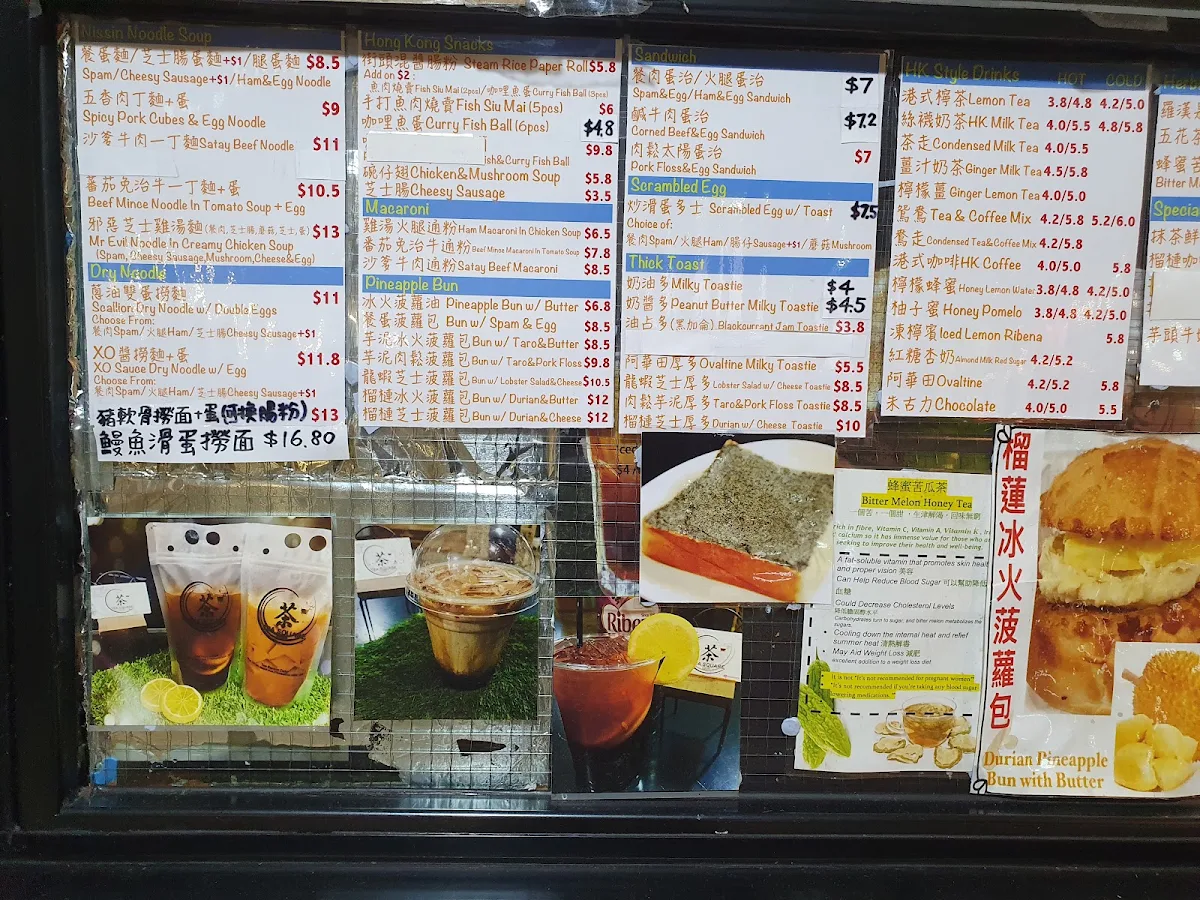 Nissin Noodle Soup
餐蛋麵/芝士腸蛋麵+$1/腿蛋麵 $8.5
Spam/Cheesy Sausage+$1/Ham&Egg Noodle
五香肉丁麵+蛋 $9
Spicy Pork Cubes & Egg Noodle
沙爹牛肉一丁麵Satay Beef Noodle $11
蕃茄免治牛一丁麵+蛋 $10.5
Beef Mince Noodle In Tomato Soup + Egg
邪惡芝士雞湯麵(餐肉,芝士腸,蘑菇,芝士,蛋) $13
Mr Evil Noodle In Creamy Chicken Soup
(Spam,Cheesy Sausage,Mushroom,Cheese&Egg)
Dry Noodle
蔥油雙蛋撈麵 $11
Scallion Dry Noodle w/ Double Eggs
Choose From:
餐肉Spam/火腿Ham/芝士腸Cheesy Sausage+$1
XO醬撈麵+蛋 $11.8
XO Sauce Dry Noodle w/ Egg
Choose From:
餐肉Spam/火腿Ham/芝士腸Cheesy Sausage+$1
豬軟骨撈面+蛋(可換腸粉) $13
鰻魚滑蛋撈面 $16.80
Hong Kong Snacks
街頭混醬腸粉 Steam Rice Paper Roll $5.8
Add on $2 :
魚肉燒賣Fish Siu Mai (2pcs)/咖哩魚蛋Curry Fish Ball (3pcs)
手打魚肉燒賣Fish Siu Mai (5pcs) $6
咖哩魚蛋Curry Fish Ball (6pcs) $4.8
$9.8
ish&Curry Fish Ball
碗仔翅Chicken&Mushroom Soup $5.8
芝士腸Cheesy Sausage $3.5
Macaroni
雞湯火腿通粉Ham Macaroni In Chicken Soup $6.5
蕃茄免治牛通粉Beef Mince Macaroni In Tomato Soup $7.8
沙爹牛肉通粉Satay Beef Macaroni $8.5
Pineapple Bun
冰火菠蘿油 Pineapple Bun w/ Butter $6.8
餐蛋菠蘿包 Bun w/ Spam & Egg $8.5
芋泥冰火菠蘿包Bun w/ Taro&Butter $8.5
芋泥肉鬆菠蘿包Bun w/ Taro&Pork Floss $9.8
龍蝦芝士菠蘿包Bun w/ Lobster Salad&Cheese $10.5
榴槤冰火菠蘿包Bun w/ Durian&Butter $12
榴槤芝士菠蘿包Bun w/ Durian&Cheese $12
Sandwich
餐肉蛋治/火腿蛋治 $7
Spam&Egg/Ham&Egg Sandwich
鹹牛肉蛋治 $7.2
Corned Beef&Egg Sandwich
肉鬆太陽蛋治 $7
Pork Floss&Egg Sandwich
Scrambled Egg
炒滑蛋多士 Scrambled Egg w/ Toast $7.5
Choice of:
餐肉Spam/火腿Ham/腸仔Sausage+$1/蘑菇Mushroom
Thick Toast
奶油多Milky Toastie $4
奶醬多Peanut Butter Milky Toastie $4.5
油占多(黑加侖) Blackcurrant Jam Toastie $3.8
阿華田厚多Ovaltine Milky Toastie $5.5
龍蝦芝士厚多Lobster Salad w/ Cheese Toastie $8.5
肉鬆芋泥厚多Taro&Pork Floss Toastie $8.5
榴槤芝士厚多Durian w/ Cheese Toastie $10
HK Style Drinks HOT COLD
港式檸茶Lemon Tea 3.8/4.8 4.2/5.0
絲襪奶茶HK Milk Tea 4.0/5.5 4.8/5.8
茶走Condensed Milk Tea 4.0/5.5
薑汁奶茶Ginger Milk Tea 4.5/5.8
檸檬薑Ginger Lemon Tea 4.0/5.0
鴛鴦Tea & Coffee Mix 4.2/5.8 5.2/6.0
鴦走Condensed Tea&Coffee Mix 4.2/5.8
港式咖啡HK Coffee 4.0/5.0 5.8
檸檬蜂蜜Honey Lemon Water 3.8/4.8 4.2/5.0
柚子蜜Honey Pomelo 3.8/4.8 4.2/5.0
凍檸賓Iced Lemon Ribena 5.8
紅糖杏奶Almond Milk Red Sugar 4.2/5.2
阿華田Ovaltine 4.2/5.2 5.8
朱古力Chocolate 4.0/5.0 5.5
羅漢
五花茶
蜂蜜苦
Bitter M
Specia
抹茶鮮
榴槤咖
芋頭牛
茶
茶
Ribe
茶
SQUARE
蜂蜜苦瓜茶
Bitter Melon Honey Tea
一個苦，一個甜，生津解渴，回味無窮
rich in fibre, Vitamin C, Vitamin A, Vitamin K,
calcium so it has immense value for those who
seeking to improve their health and well-being.
A fat-soluble vitamin that promotes skin heal
and proper vision 美容
Can Help Reduce Blood Sugar 可以幫助降低
血糖
Could Decrease Cholesterol Levels
降低膽固醇水平
Carbohydrates turn to sugar, and bitter melon metabolizes the
sugars.
Cooling down the internal heat and relief
summer heat 清熱解毒
May Aid Weight Loss 減肥
excellent addition to a weight loss diet
It is hot "It's not recommended for pregnant women"
"It's not recommended if you're taking any blood sugar
lowering medications."
榴蓮冰火菠蘿包
Durian Pineapple
Bun with Butter